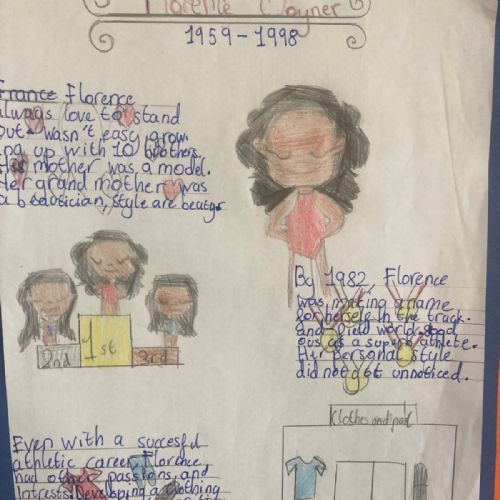 Florence Joyner
1959-1998
France Florence
always love to stand
out wasn't easy grow
ing up with 10 brothers.
mother was a model.
Her grand mother was
a beautician, style are
By 1982, Florence
was making a name
for herself in the track
and field world
ous as a superb athlete.
Her personal style
did not got unnoticed.
2nd
1st
3rd
Clothes and
Even with a succesful
athletic career Florence
had other passions and
Intrests. Developing a clothing